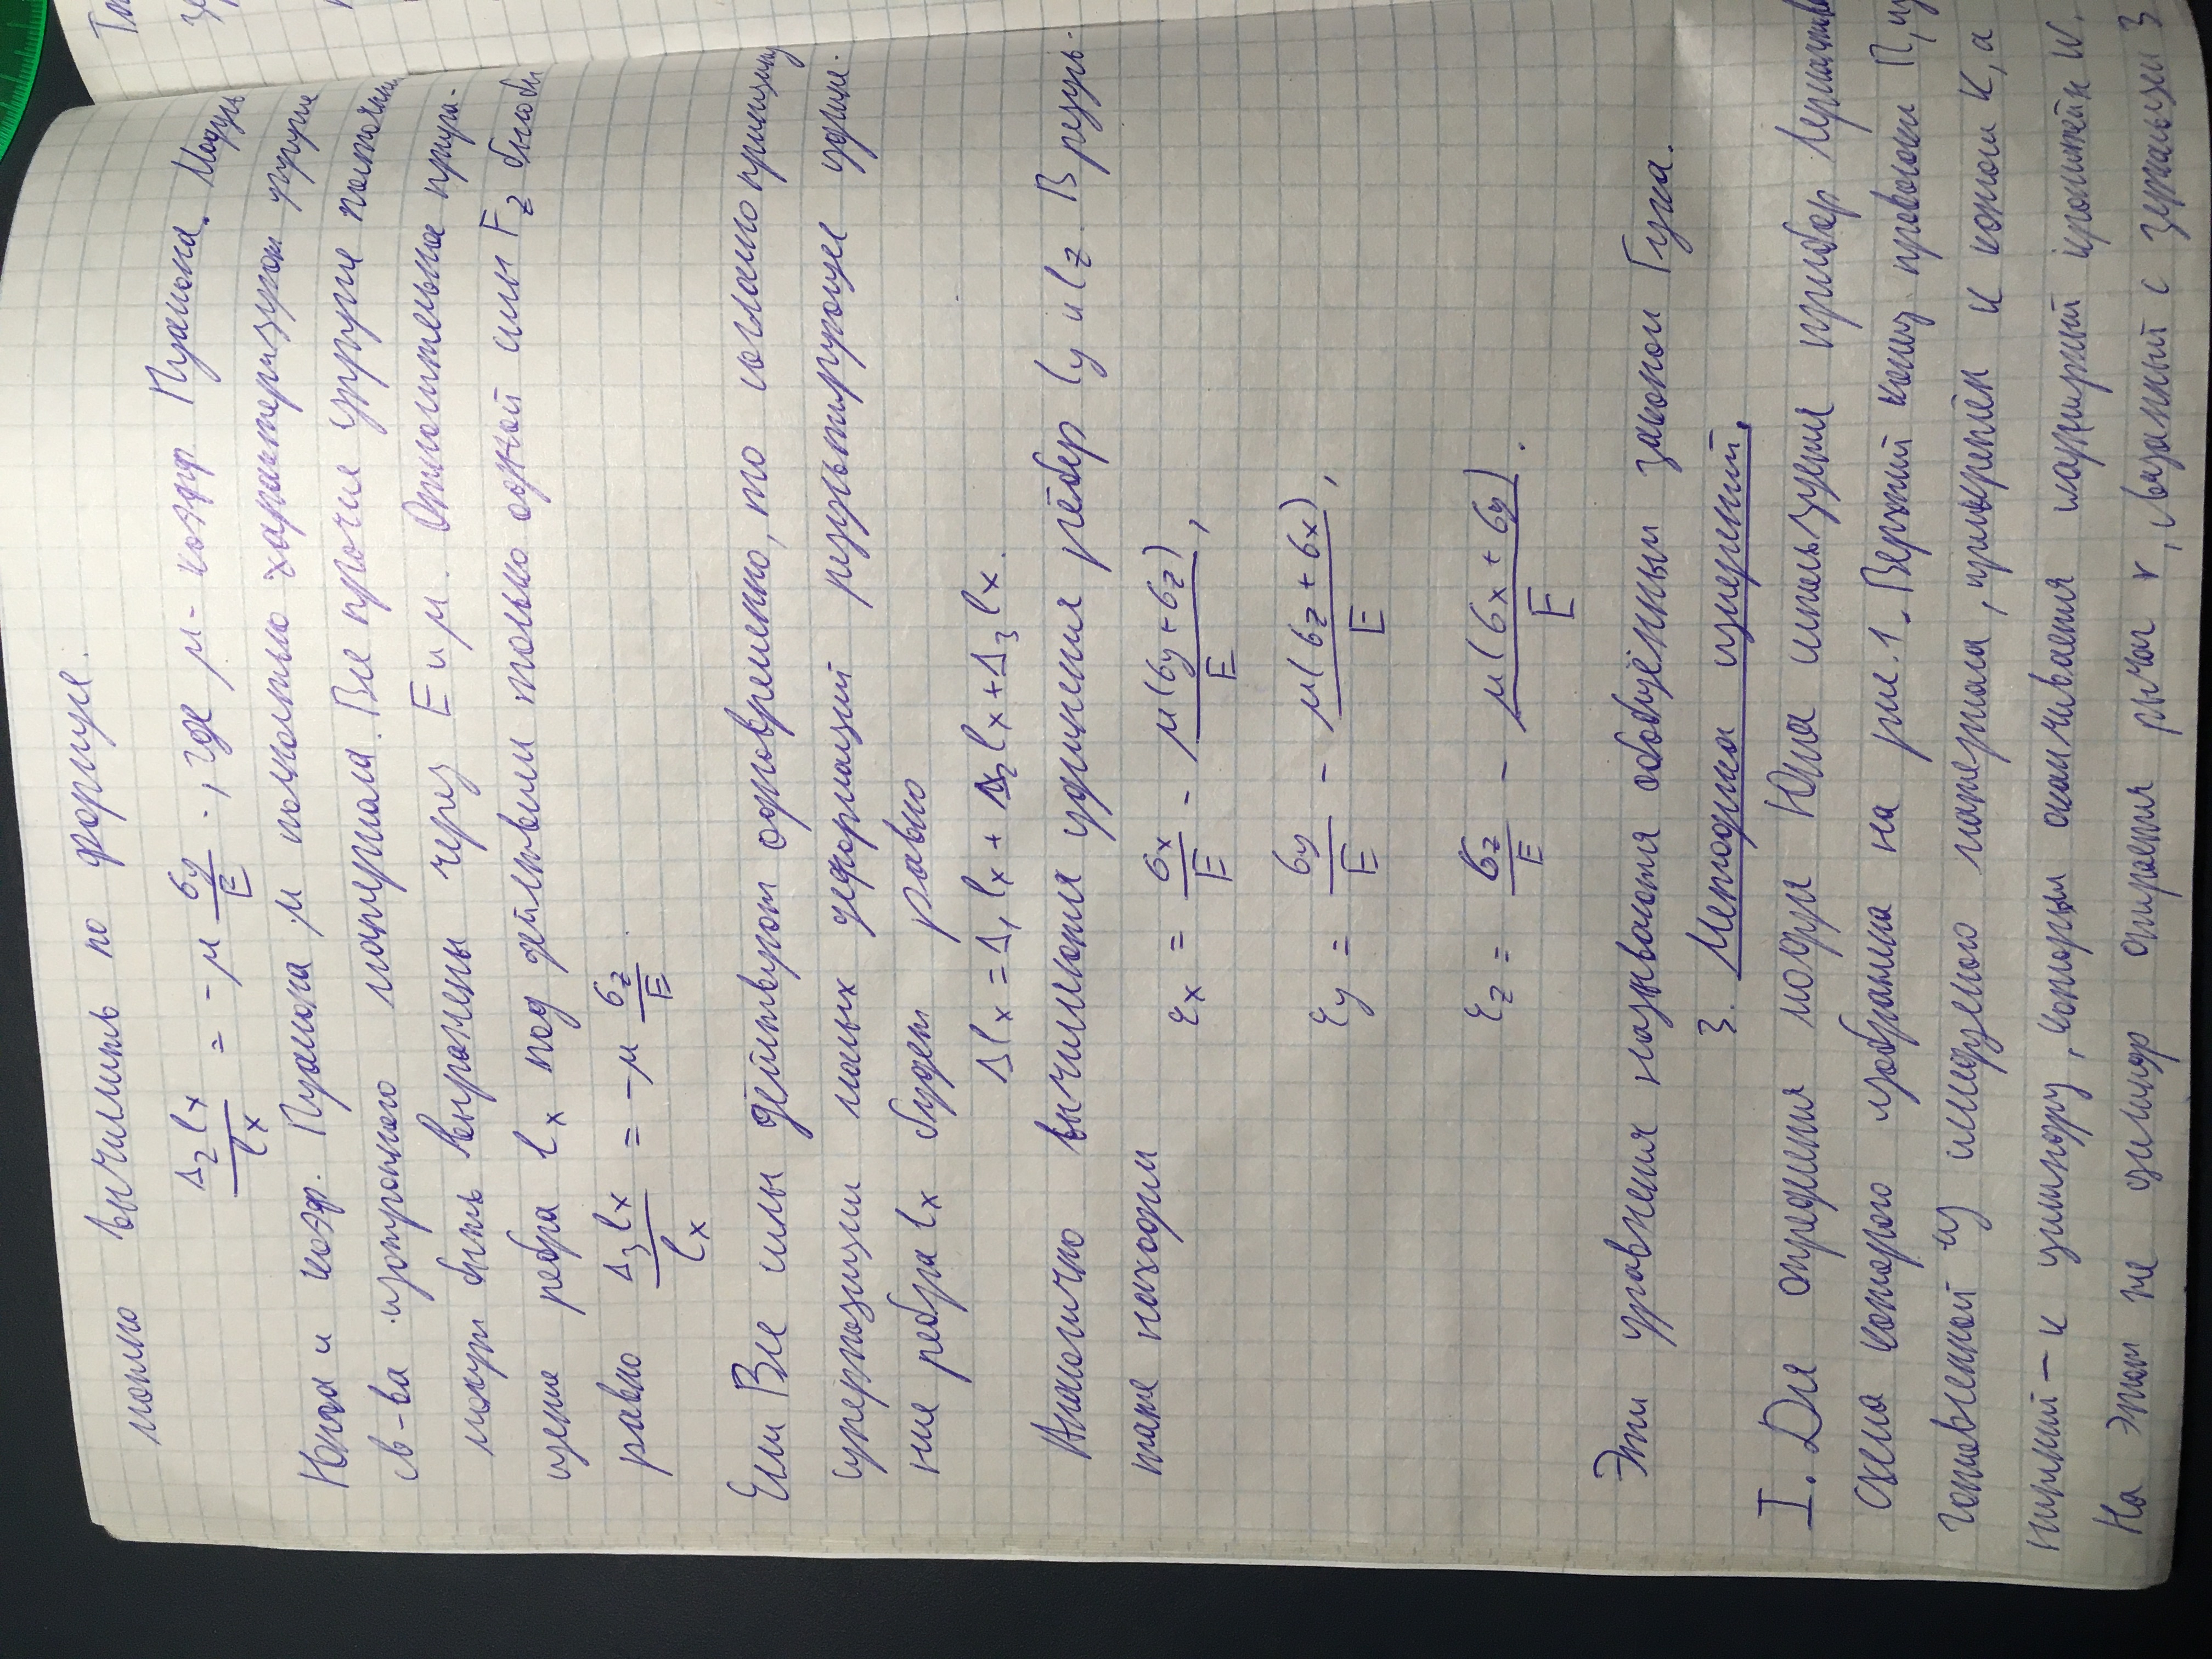 можно вычислить по формуле.
Δ₂lx/lx = -μ σy/E, где μ - коэфф Пуассона. Модуль
Юнга и коэф. Пуассона μ полностью характеризуют упругие
св-ва изотропного материала. Все прочие упругие постоянные
могут быть выражены через E и μ. Относительное прира-
щение ребра lx под действием только одной силы Fz было бы
равно Δ₃lx/lx = -μ σz/E.
Если Все силы действуют одновременно, то согласно принципу
суперпозиции малых деформаций результирующее удлине-
ние ребра lx будет равно
Δlx = Δ₁lx + Δ₂lx + Δ₃lx.
Аналогично вычисляются удлинения рёбер ly и lz. В резуль-
тате находим
εx = σx/E - μ(σy+σz)/E,
εy = σy/E - μ(σz+σx)/E,
εz = σz/E - μ(σx+σy)/E.
Эти уравнения называются обобщённым законом Гука.
3. Методика измерений.
I. Для определения модуля Юнга используется прибор Лермантова
схема которого изображена на рис. 1. Верхний конец проволоки П, из
готовленной из исследуемого материала, прикреплён к консоли К, а
нижний – к цилиндру, которым оканчивается шарнирный кронштейн Ш.
На этот же цилиндр опирается рычаг r, связанный с зеркальцем З
Та